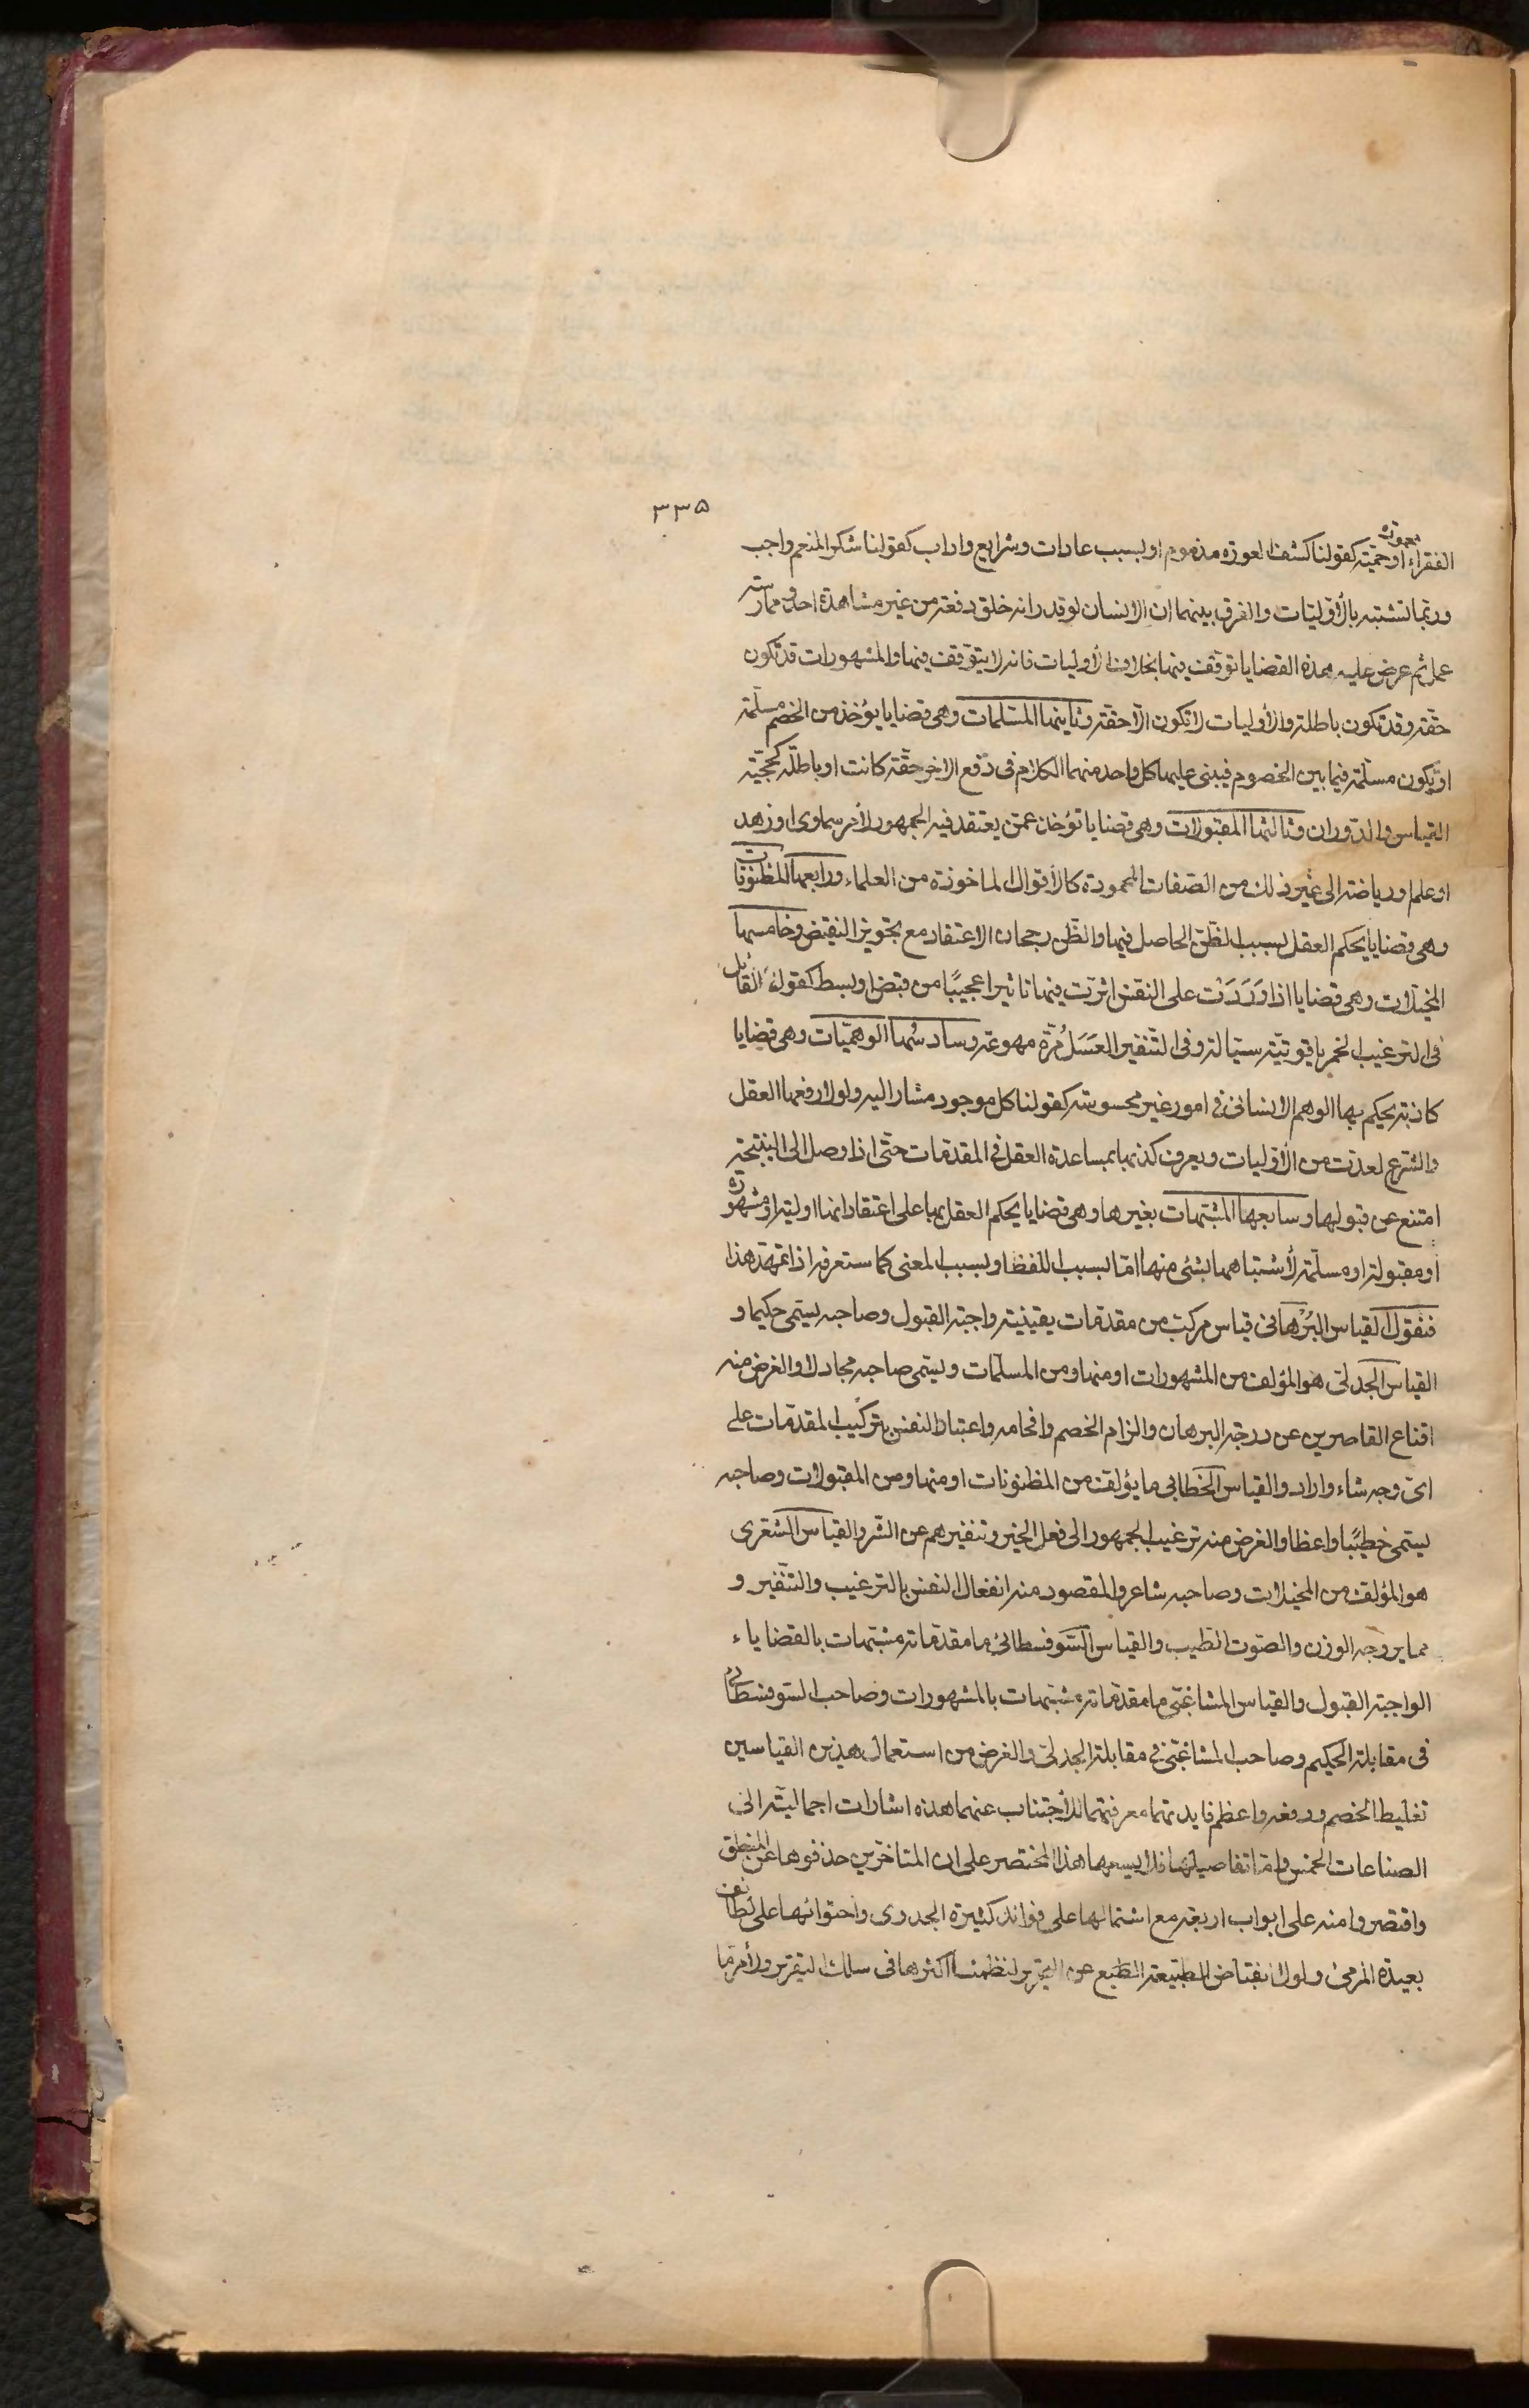 ٣٣۵
محمودة
الفقراء او حميّة كقولنا كشف العورة مذموم او بسبب عادات وشرايع واداب كقولنا شكر المنعم واجب
وربما تشتبه بالأوّليّات والفرق بينهما ان الانسان لو قدر انه خلق دفعة من غير مشاهدة احد وممارسته
عمل ثم عرض عليه هذه القضايا توقف فيها بخلاف الأوليات فانه لا يتوقف فيها والمشهورات قد تكون
حقّة وقد تكون باطلة والأوليات لا تكون الّا حقّة وثانيها المسلمات وهى قضايا يؤخذ من الخصم مسلّمة
او يكون مسلّمة فيما بين الخصوم فيبنى عليها كل واحد منهما الكلام فى دفع الاخر حقّة كانت او باطلة كحجّيّة
القياس والدّوران وثالثها المقبولات وهى قضايا تؤخذ عمّن يعتقد فيه الجمهور لأمر سماوى او زهد
او علم او رياضة الى غير ذلك من الصّفات المحمودة كالأقوال الماخوذة من العلماء ورابعها المظنونات
وهى قضايا يحكم العقل بسبب الظّنّ الحاصل فيها والظّن رجحان الاعتقاد مع تجويز النقيض وخامسها
المخيّلات وهى قضايا اذا وَرَدَت على النفس اثرت فيها تاثيرا عجيبًا من قبض او بسط كقول القائل
فى الترغيب الخمر ياقوتيّة سيّالة وفى التّنفير العَسَل مُرّة مهوعة وسادسُها الوهميّات وهى قضايا
كاذبة يحكم بها الوهم الانسانى فى امور غير محسوسة كقولنا كل موجود مشار اليه ولولا دفعها العقل
والشرع لعدّت من الأوّليات ويعرف كذبها بمساعدة العقل فى المقدمات حتّى اذا وصل الى النتيجة
امتنع عن قبولها وسابعها المشتبهات بغيرها وهى قضايا يحكم العقل بها على اعتقاد انها اولية او مشهورة
او مقبولة او مسلّمة لأشتباهها بشئ منها امّا بسبب اللفظ او بسبب المعنى كما ستعرفه اذا تمهّد هذا
فنقول القياس البُرْهانى قياس مركب من مقدمات يقينية واجبة القبول وصاحبه يسمّى حكيما و
القياس الجدلى هو المؤلف من المشهورات او منها ومن المسلّمات ويسمى صاحبه مجادلا والغرض منه
اقناع القاصرين عن درجة البرهان والزام الخصم وافحامه واعتياد النفس بتركيب المقدّمات على
اىّ وجه شاء واراد والقياس الخطابى ما يؤلف من المظنونات او منها ومن المقبولات وصاحبه
يسمّى خطيبًا واعظا والغرض منه ترغيب الجمهور الى فعل الخير وتنفيرهم عن الشّر والقياس الشعرى
هو المؤلف من المخيلات وصاحبه شاعر والمقصود منه انفعال النفس بالترغيب والتنفير و
مما يروجه الوزن والصّوت الطيب والقياس السّوفسطائى ما مقدّماته مشتبهات بالقضاياء
الواجبة القبول والقياس المشاغبى ما مقدّماته مشتبهات بالمشهورات وصاحب السّوفسطائى
فى مقابلة الحكيم وصاحب المشاغبى فى مقابلة الجدلى والغرض من استعمال هذين القياسين
تغليط الخصم ودفعه واعظم فايدتهما معرفتهما للأجتناب عنهما هذه اشارات اجماليّة الى
الصناعات الخمس وامّا تفاصيلها فلا يسعها هذا المختصر على ان المتاخّرين حذفوها عن المنطق
واقتصروا منه على ابواب اربعة مع اشتمالها على فوائد كثيرة الجدوى واحتوائها على لطائف
بعيدة المرمى ولولا انقباض الطبيعة الطبع عن التحرير لنظمنا اكثرها فى سلك التقرير ولأمر ما